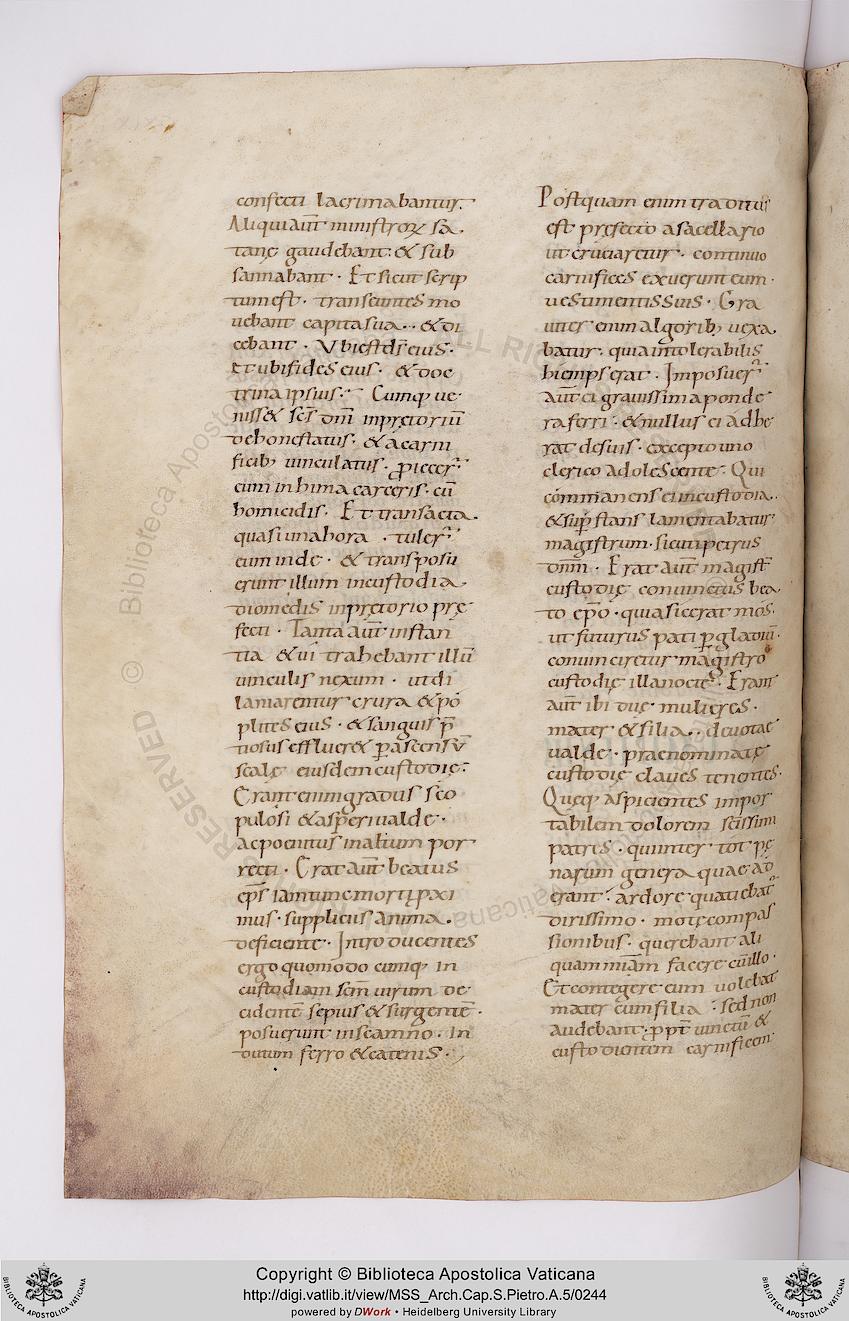 confecti lacrimabantur.
Aliqui aūt ministrorꝝ sa
tanę gaudebant. & sub
sannabant · Et sicut scrip
tum est · transeuntes mo
uebant capita sua · & di
cebant · Vbi est d̄s eius ·
Et ubi fides eius · & doc
trina ipsius · Cumq; ue
niss& sc̄s dn̄i in pretoriū
dehonestatus · & a carni
ficib; uinculatus · proiecer̄
eum in hima carceris · cū
homicidis · Et transacta
quasi una hora · tuler̄
eum inde · & transposu
erunt illum in custodia
diomedis in pretorio pre
fecti · Tanta aūt instan
tia & ui trahebant illū
uinculis nexum · ut di
laniarentur crura & po
plites eius · & sanguis
efflueret & p ascensū
scalę eiusdem custodię ·
Erant enim gradus sco
pulosi & asperi ualde ·
ac pocntus in altum por
recti · Erat aūt beatus
ep̄s iam tunc morti proxi
mus · suppliciis anima
deficiente · Introducentes
ergo quomodo cumq; in
custodiam sc̄m uirum de
cidentē sepius & surgentē ·
posuerunt in scamno · In
dutum ferro & catenis ·
Postquam enim traditus
est prefecto a sacellario
ut cruciaretur · continuo
carnifices exuerunt eum ·
uestimentis suis · Gra
uiter enim algorib; uexa
batur · quia intolerabilis
hiemps erat · Imposuer̄
aūt ei grauissima ponde
ra ferri · & nullus ei adhe
rat de suis · excepto uno
clerico adolescente · Qui
commanens ei in custodia ·
& sup̄stans lamentabatur
magistrum · sicuti petrus
dn̄m · Erat aūt magist̄
custodię conuinctus bea
to ep̄o · quia sic erat mos ·
ut futurus pati p gladiū ·
conuinciretur magistro
custodię illa nocte · Erant
aūt ibi duę mulieres ·
mater & filia · deuotae
ualde · praenominatę
custodię claues tenentes ·
Queq; aspicientes impor
tabilem dolorem sc̄issimi
patris · qui inter tot pę
narum genera quae ad
erant · ardore quatiebat̄
dirissimo · motę compas
sionibus · querebant ali
quam miām facere cū illo ·
Et contegere eum uolebat
mater cum filia · sed non
audebant · ppt uinctū &
custodientem carnificem
Copyright © Biblioteca Apostolica Vaticana
http://digi.vatlib.it/view/MSS_Arch.Cap.S.Pietro.A.5/0244
powered by DWork • Heidelberg University Library